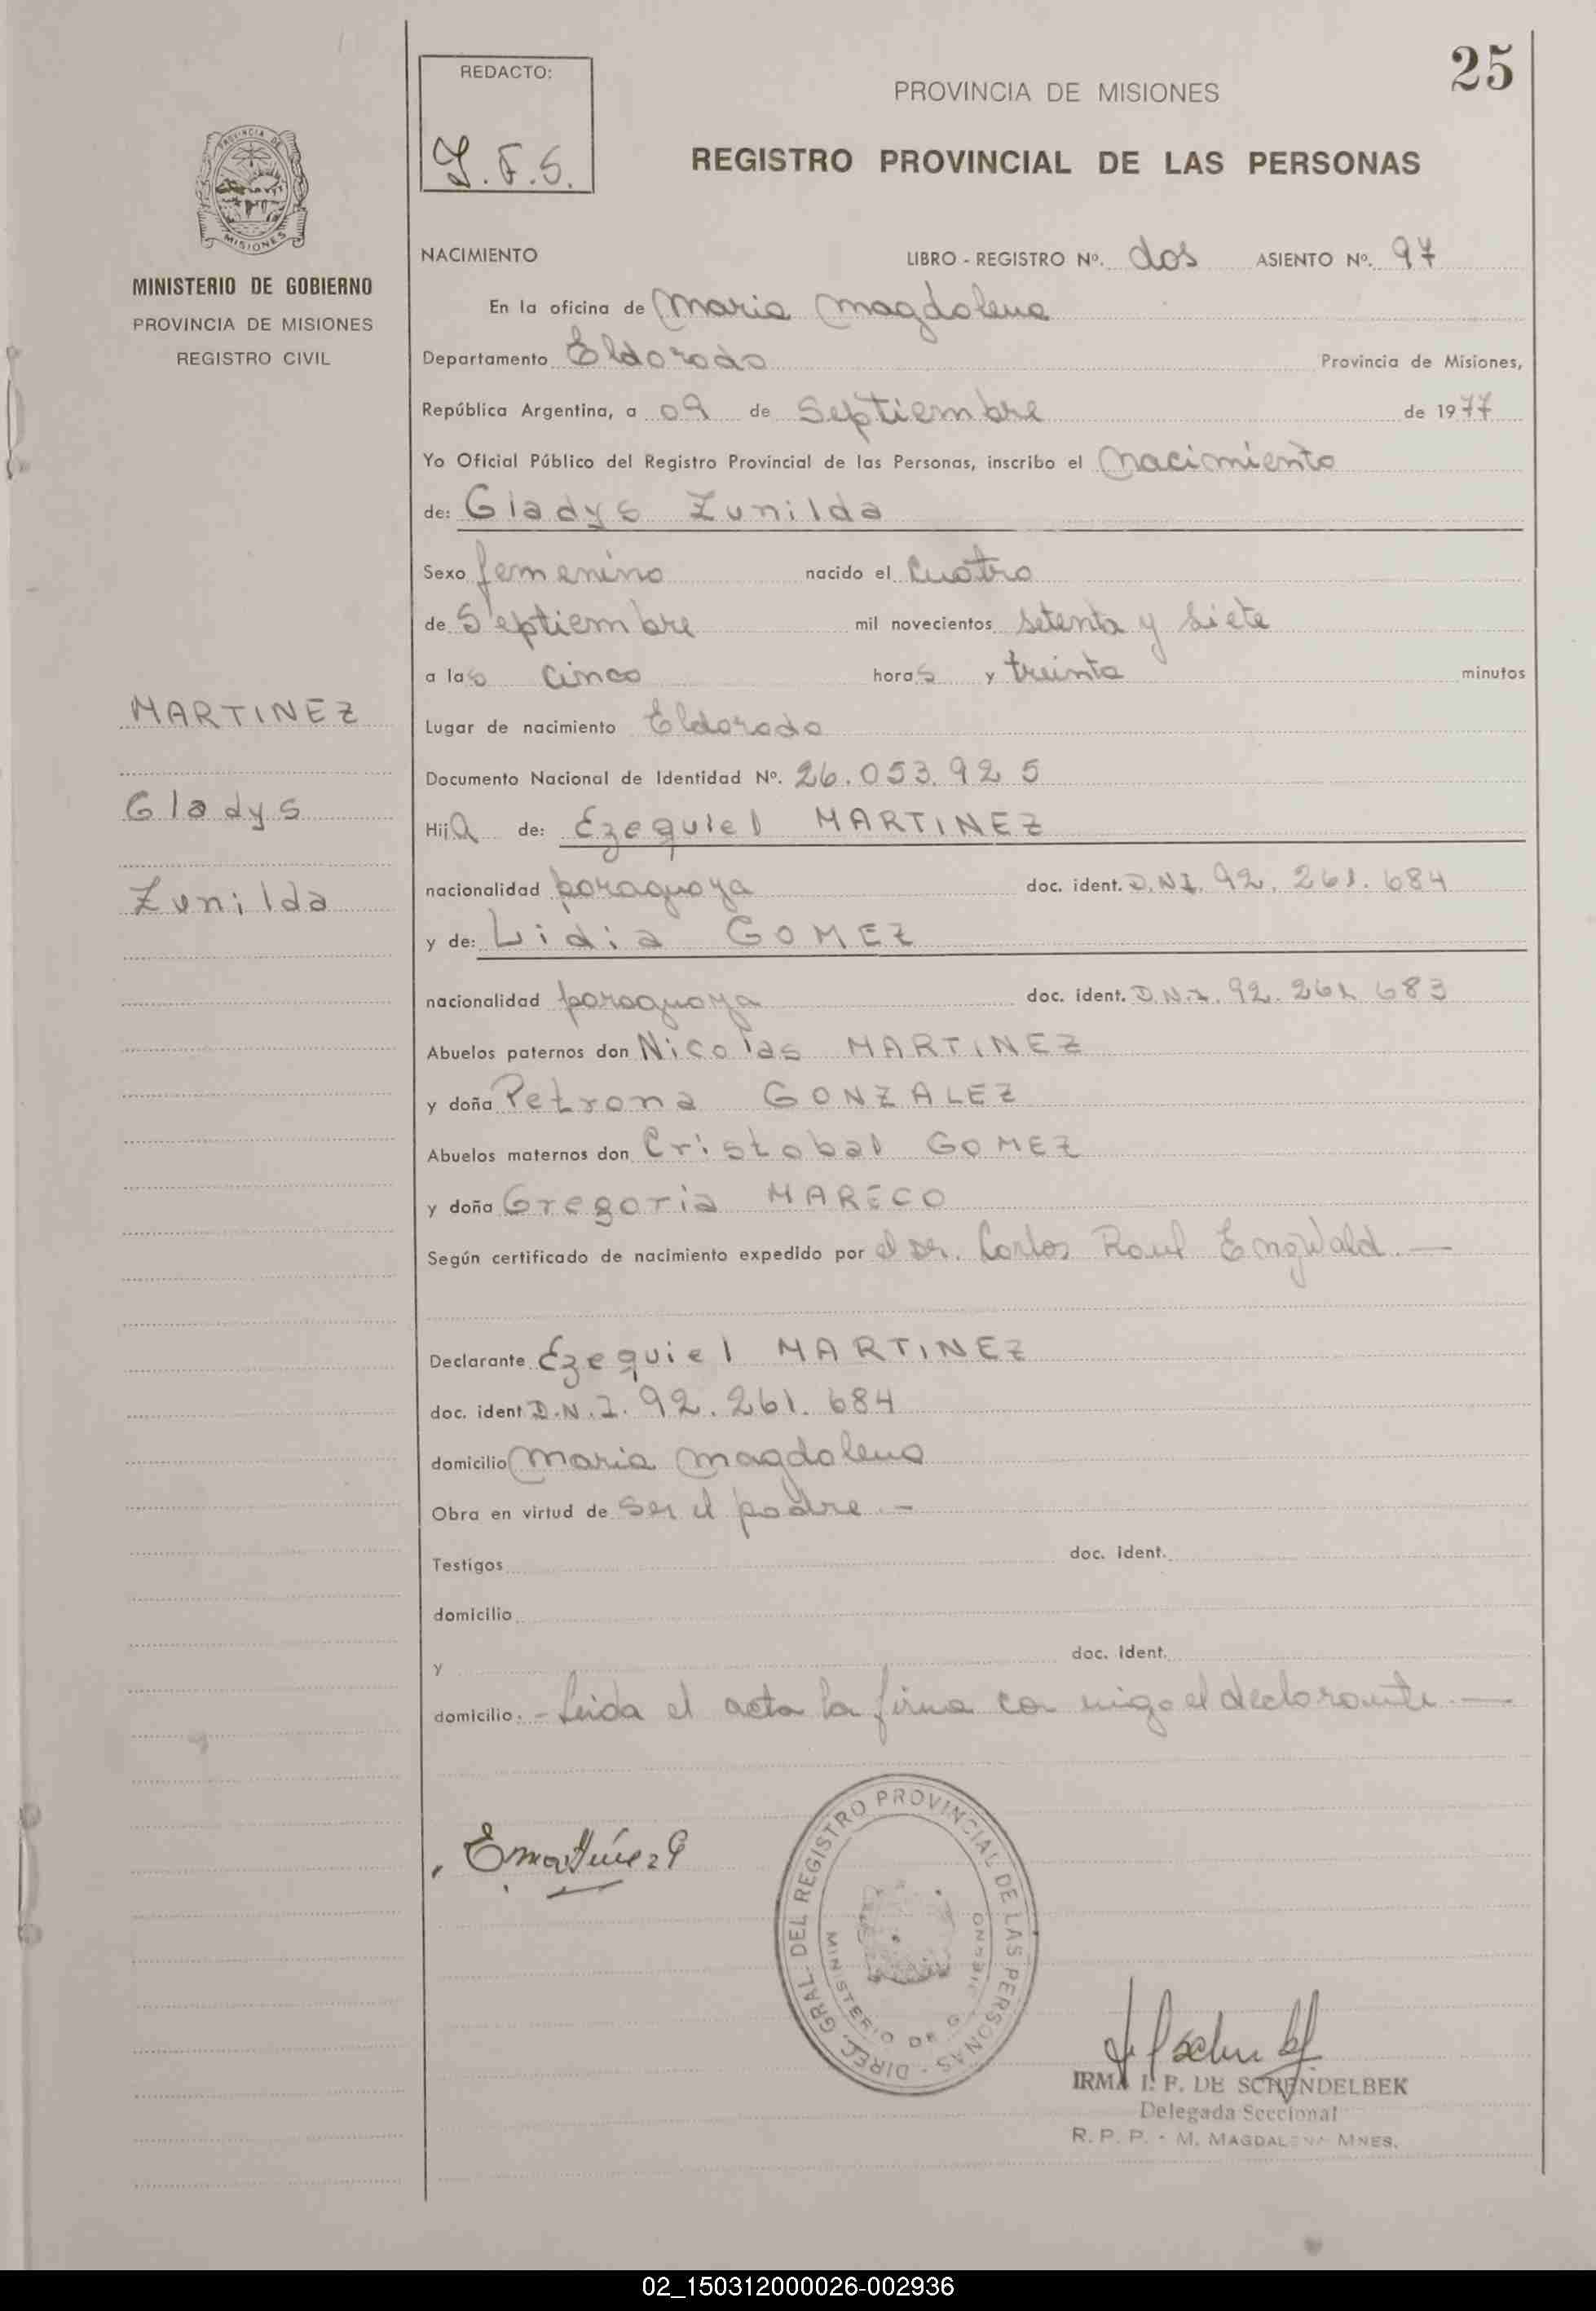 25
REDACTO:
J.F.S.
PROVINCIA DE MISIONES
REGISTRO PROVINCIAL DE LAS PERSONAS
PROVINCIA DE
MISIONES
MINISTERIO DE GOBIERNO
PROVINCIA DE MISIONES
REGISTRO CIVIL
MARTINEZ
Gladys
Zunilda
NACIMIENTO LIBRO - REGISTRO Nº. dos ASIENTO Nº. 97
En la oficina de Maria Magdalena
Departamento Eldorado Provincia de Misiones,
República Argentina, a 09 de Septiembre de 1977
Yo Oficial Público del Registro Provincial de las Personas, inscribo el Nacimiento
de: Gladys Zunilda
Sexo femenino nacido el Cuatro
de Septiembre mil novecientos setenta y siete
a las cinco horas y treinta minutos
Lugar de nacimiento Eldorado
Documento Nacional de Identidad Nº. 26.053.925
Hija de: Ezequiel MARTINEZ
nacionalidad paraguaya doc. ident. D.N.I. 92.261.684
y de: Lidia GOMEZ
nacionalidad paraguaya doc. ident. D.N.I. 92.261.683
Abuelos paternos don Nicolas MARTINEZ
y doña Petrona GONZALEZ
Abuelos maternos don Cristobal GOMEZ
y doña Gregoria MARECO
Según certificado de nacimiento expedido por el Dr. Carlos Raul Engwald.—
Declarante Ezequiel MARTINEZ
doc. ident D.N.I. 92.261.684
domicilio Maria Magdalena
Obra en virtud de ser el padre.-
Testigos doc. ident.
domicilio
y doc. ident.
domicilio: - Leida el acta la firma con migo el declarante.—
EMartínez G
DIREC. GRAL. DEL REGISTRO PROVINCIAL DE LAS PERSONAS -
MINISTERIO DE GOBIERNO
IRMA I. F. DE SCHENDELBEK
Delegada Seccional
R. P. P. - M. MAGDALENA MNES.
02_150312000026-002936